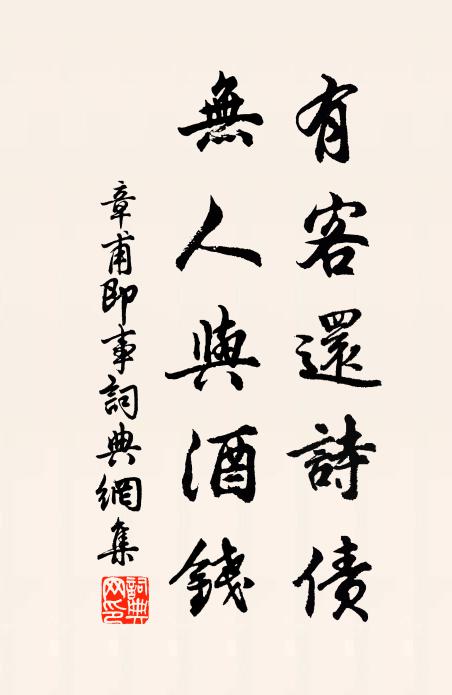 有客還詩債
無人與酒錢
章甫即事詞典網集
詞典网印